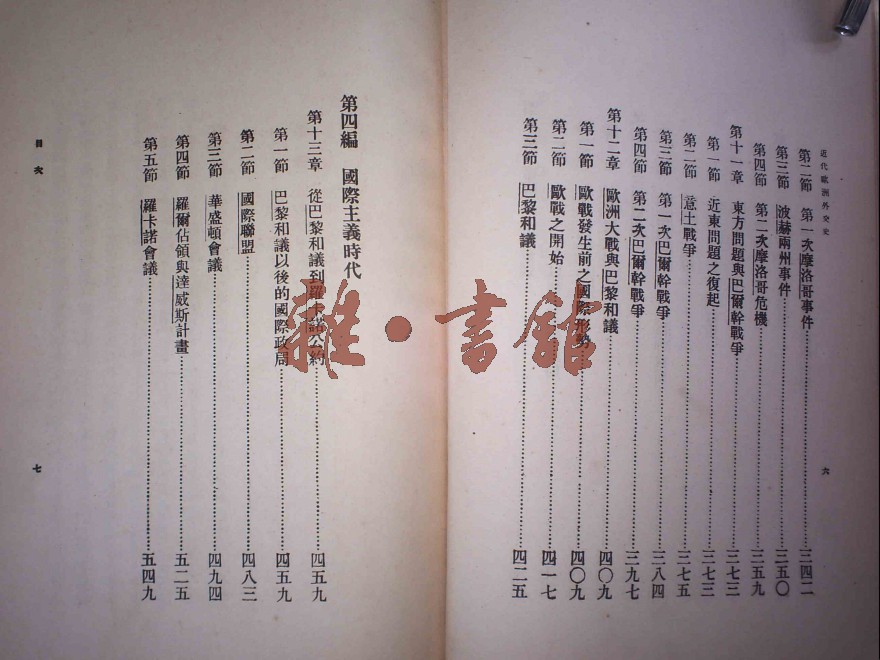 近代歐洲外交史
第二節 第一次摩洛哥事件 三四二
第三節 波赫兩州事件 三五〇
第四節 第二次摩洛哥危機 三五九
第十一章 東方問題與巴爾幹戰爭 三七三
第一節 近東問題之復起 三七三
第二節 意土戰爭 三七五
第三節 第一次巴爾幹戰爭 三八四
第四節 第二次巴爾幹戰爭 三九七
第十二章 歐洲大戰與巴黎和議 四〇九
第一節 歐戰發生前之國際形勢 四〇九
第二節 歐戰之開始 四一七
第三節 巴黎和議 四二五
六
第四編 國際主義時代
第十三章 從巴黎和議到羅卡諾公約 四五九
第一節 巴黎和議以後的國際政局 四五九
第二節 國際聯盟 四八三
第三節 華盛頓會議 四九四
第四節 羅爾佔領與達威斯計畫 五二五
第五節 羅卡諾會議 五四九
目次
七
雜·書館